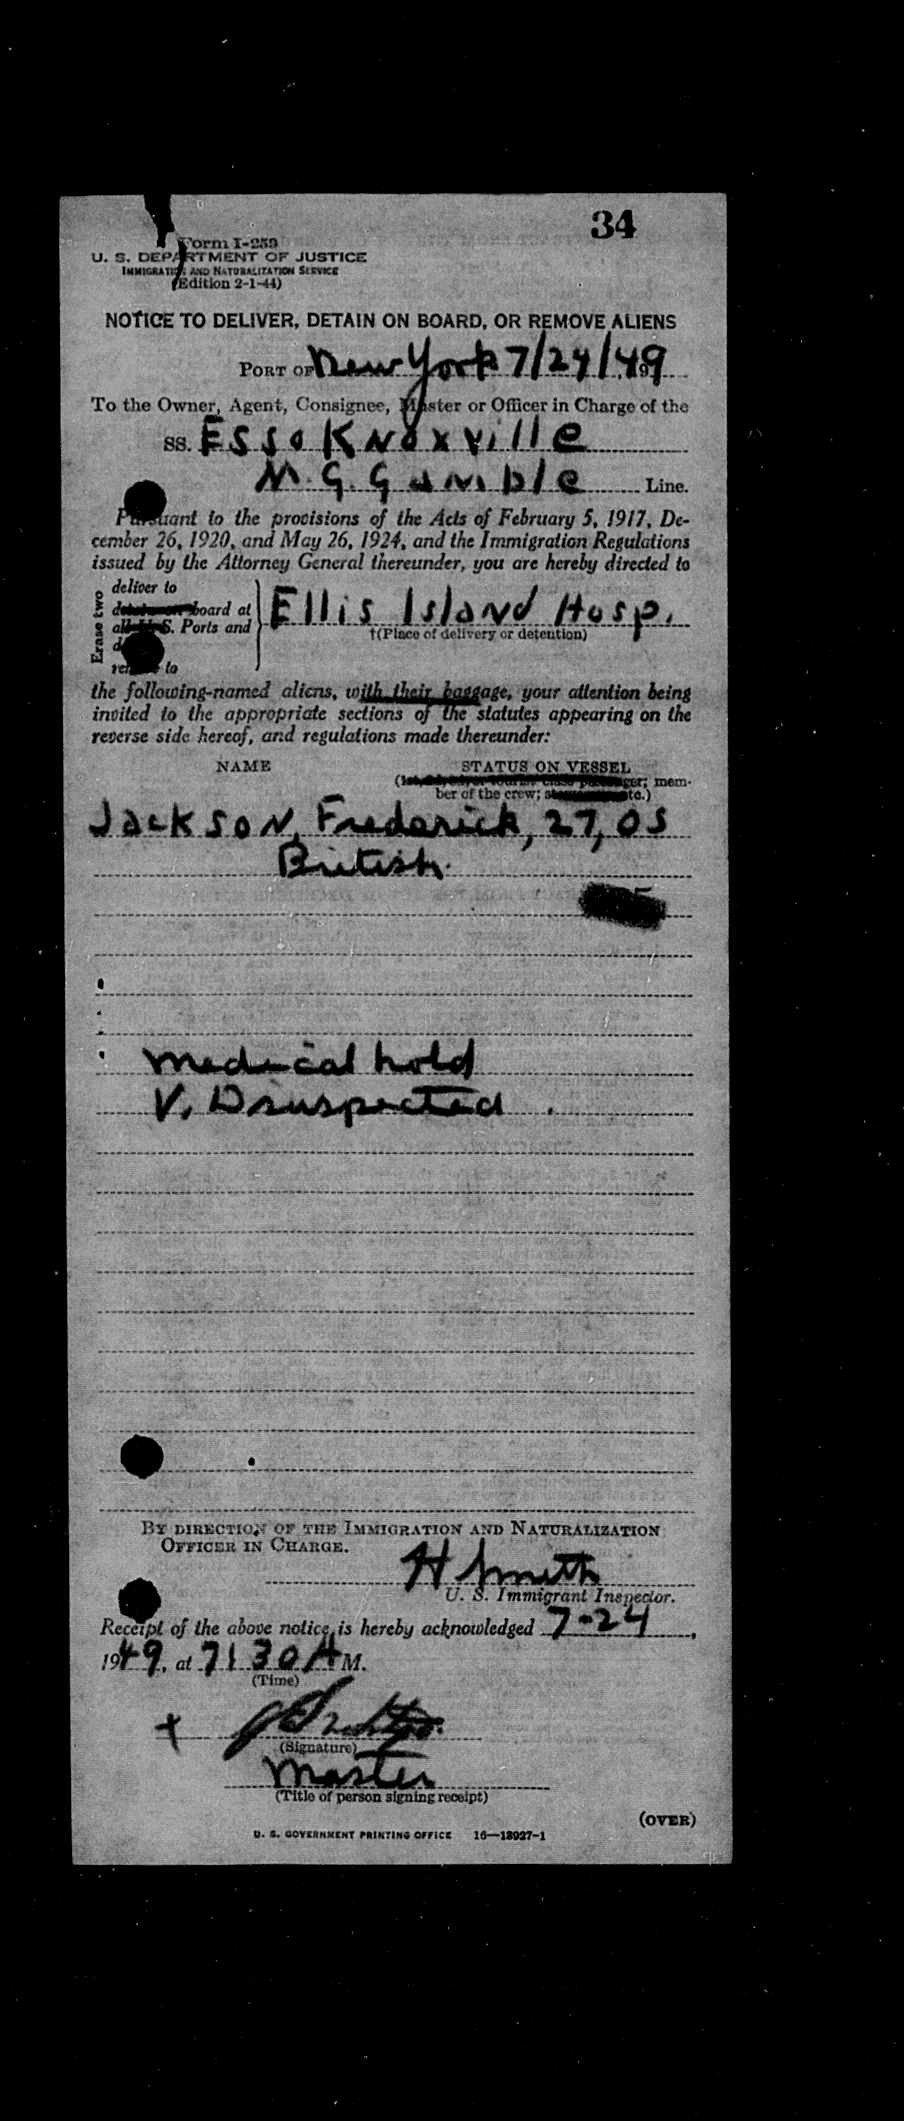 34
Form I-259
U. S. DEPARTMENT OF JUSTICE
IMMIGRATION AND NATURALIZATION SERVICE
(Edition 2-1-44)
NOTICE TO DELIVER, DETAIN ON BOARD, OR REMOVE ALIENS
PORT OF New York 7/24/49
To the Owner, Agent, Consignee, Master or Officer in Charge of the
SS. Esso Knoxville
M. G. Gamble Line.
Pursuant to the provisions of the Acts of February 5, 1917, De-
cember 26, 1920, and May 26, 1924, and the Immigration Regulations
issued by the Attorney General thereunder, you are hereby directed to
Erase two
deliver to
board at
all U. S. Ports and
remove to
Ellis Island Hosp.
†(Place of delivery or detention)
the following-named aliens, with their baggage, your attention being
invited to the appropriate sections of the statutes appearing on the
reverse side hereof, and regulations made thereunder:
NAME STATUS ON VESSEL
mem-
ber of the crew; etc.)
Jackson, Frederick, 27, OS
British.
medical hold
V. D suspected
BY DIRECTION OF THE IMMIGRATION AND NATURALIZATION
OFFICER IN CHARGE.
H Smith
U. S. Immigrant Inspector.
Receipt of the above notice is hereby acknowledged 7-24,
1949, at 7130 A M.
(Time)
(Signature)
Master
(Title of person signing receipt)
(OVER)
U. S. GOVERNMENT PRINTING OFFICE 16—13927-1